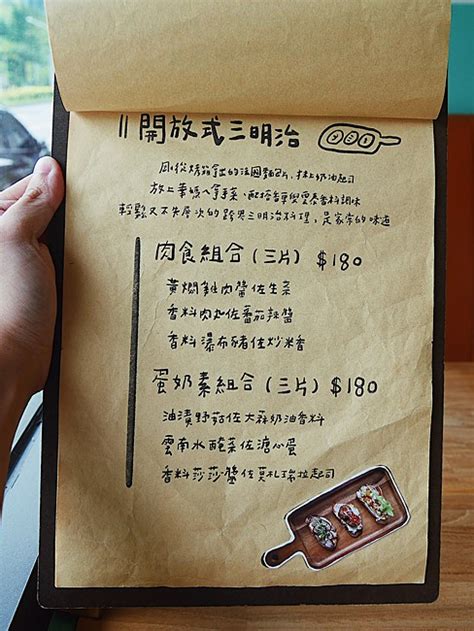 11 開放式三明治
剛從烤箱拿出的法國麵包片，抹上奶油起司
放上華媽人拿手菜、配搭香草與雲泰香料調味
輕鬆又不失層次的跨界三明治料理，是家常的味道
肉食組合(三片) $180
黃燜雞肉醬佐生菜
香料肉丸佐蕃茄辣醬
香料瀑布豬佐炒米香
蛋奶素組合(三片) $180
油漬野菇佐大蒜奶油香料
雲南水醃菜佐溏心蛋
香料莎莎醬佐莫札瑞拉起司